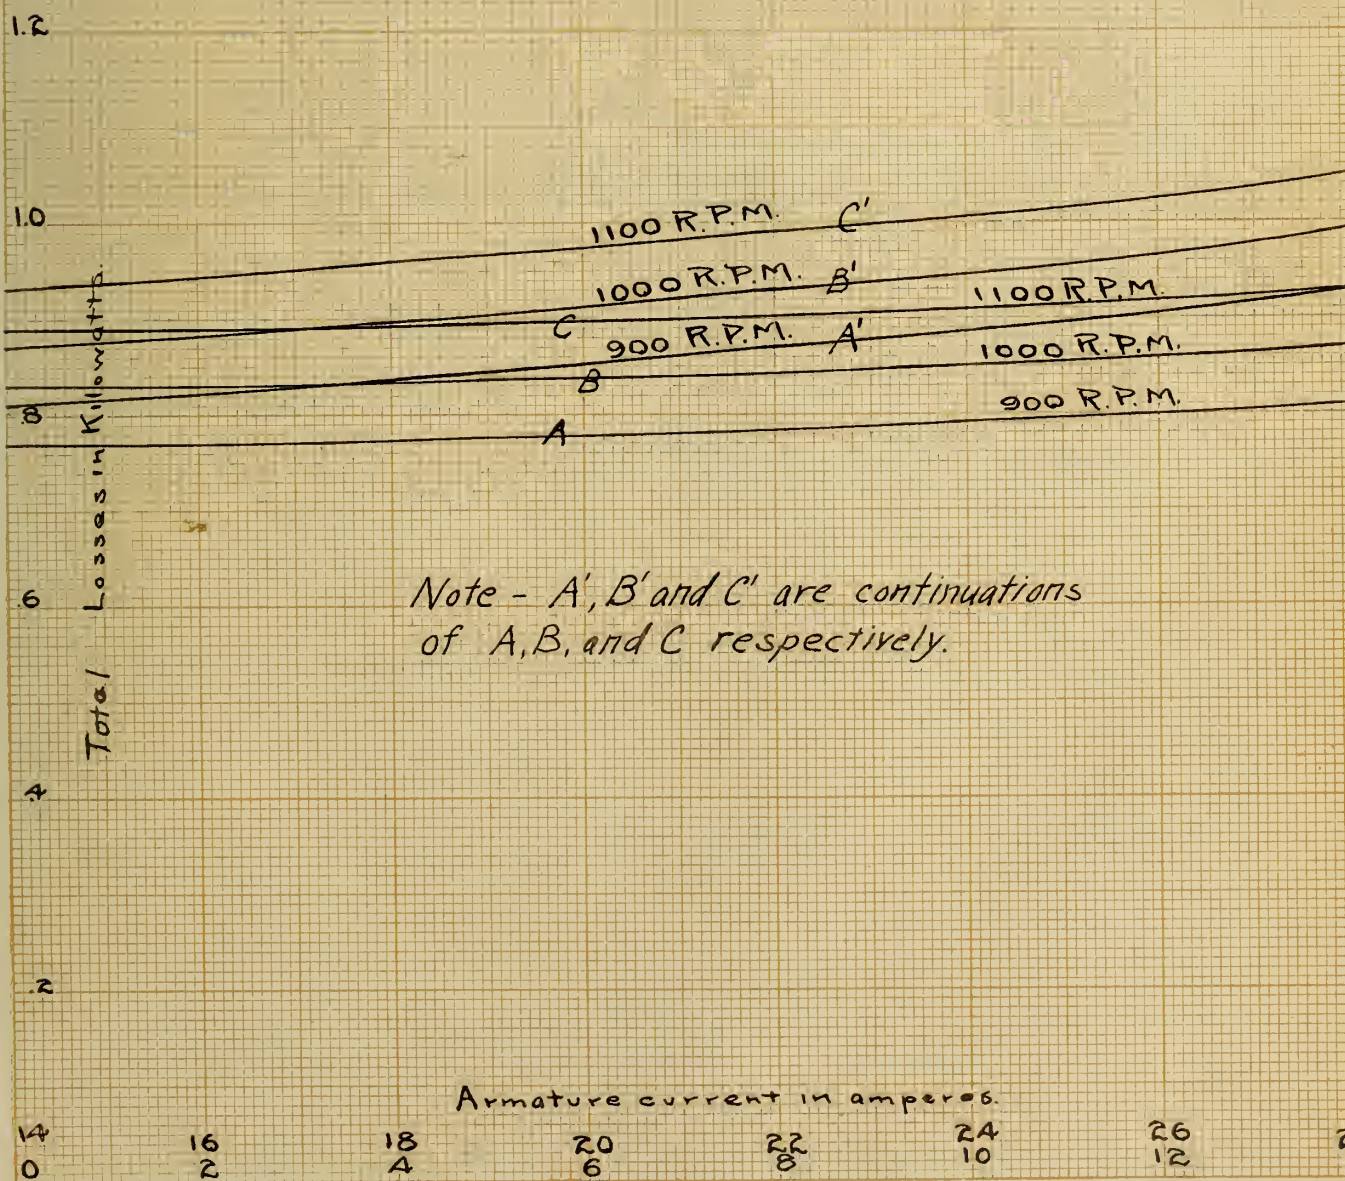 1.2
1.0
.8
.6
.4
.2
Total Losses in Killowatts.
1100 R.P.M. C'
1000 R.P.M. B'
1100 R.P.M.
C
900 R.P.M. A'
1000 R.P.M.
B
900 R.P.M.
A
Note - A', B' and C' are continuations
of A, B, and C respectively.
Armature current in amperes.
14 16 18 20 22 24 26
0 2 4 6 8 10 12